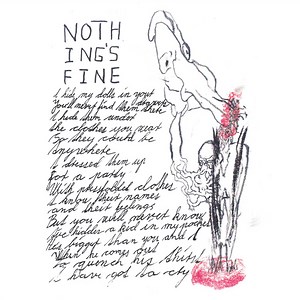 NOTH
ING'S
FINE
I hide my dolls in your
You'll never find them there
I hide them under
the clothes you wear
So they could be
anywhere
I dressed them up
for a party
With pressfolded clothes
I know their names
and their feelings
But you will never know
I've hidden a kid in my pocket
He's bigger than you and I
When he comes out
to quench his thirst
I have got to cry